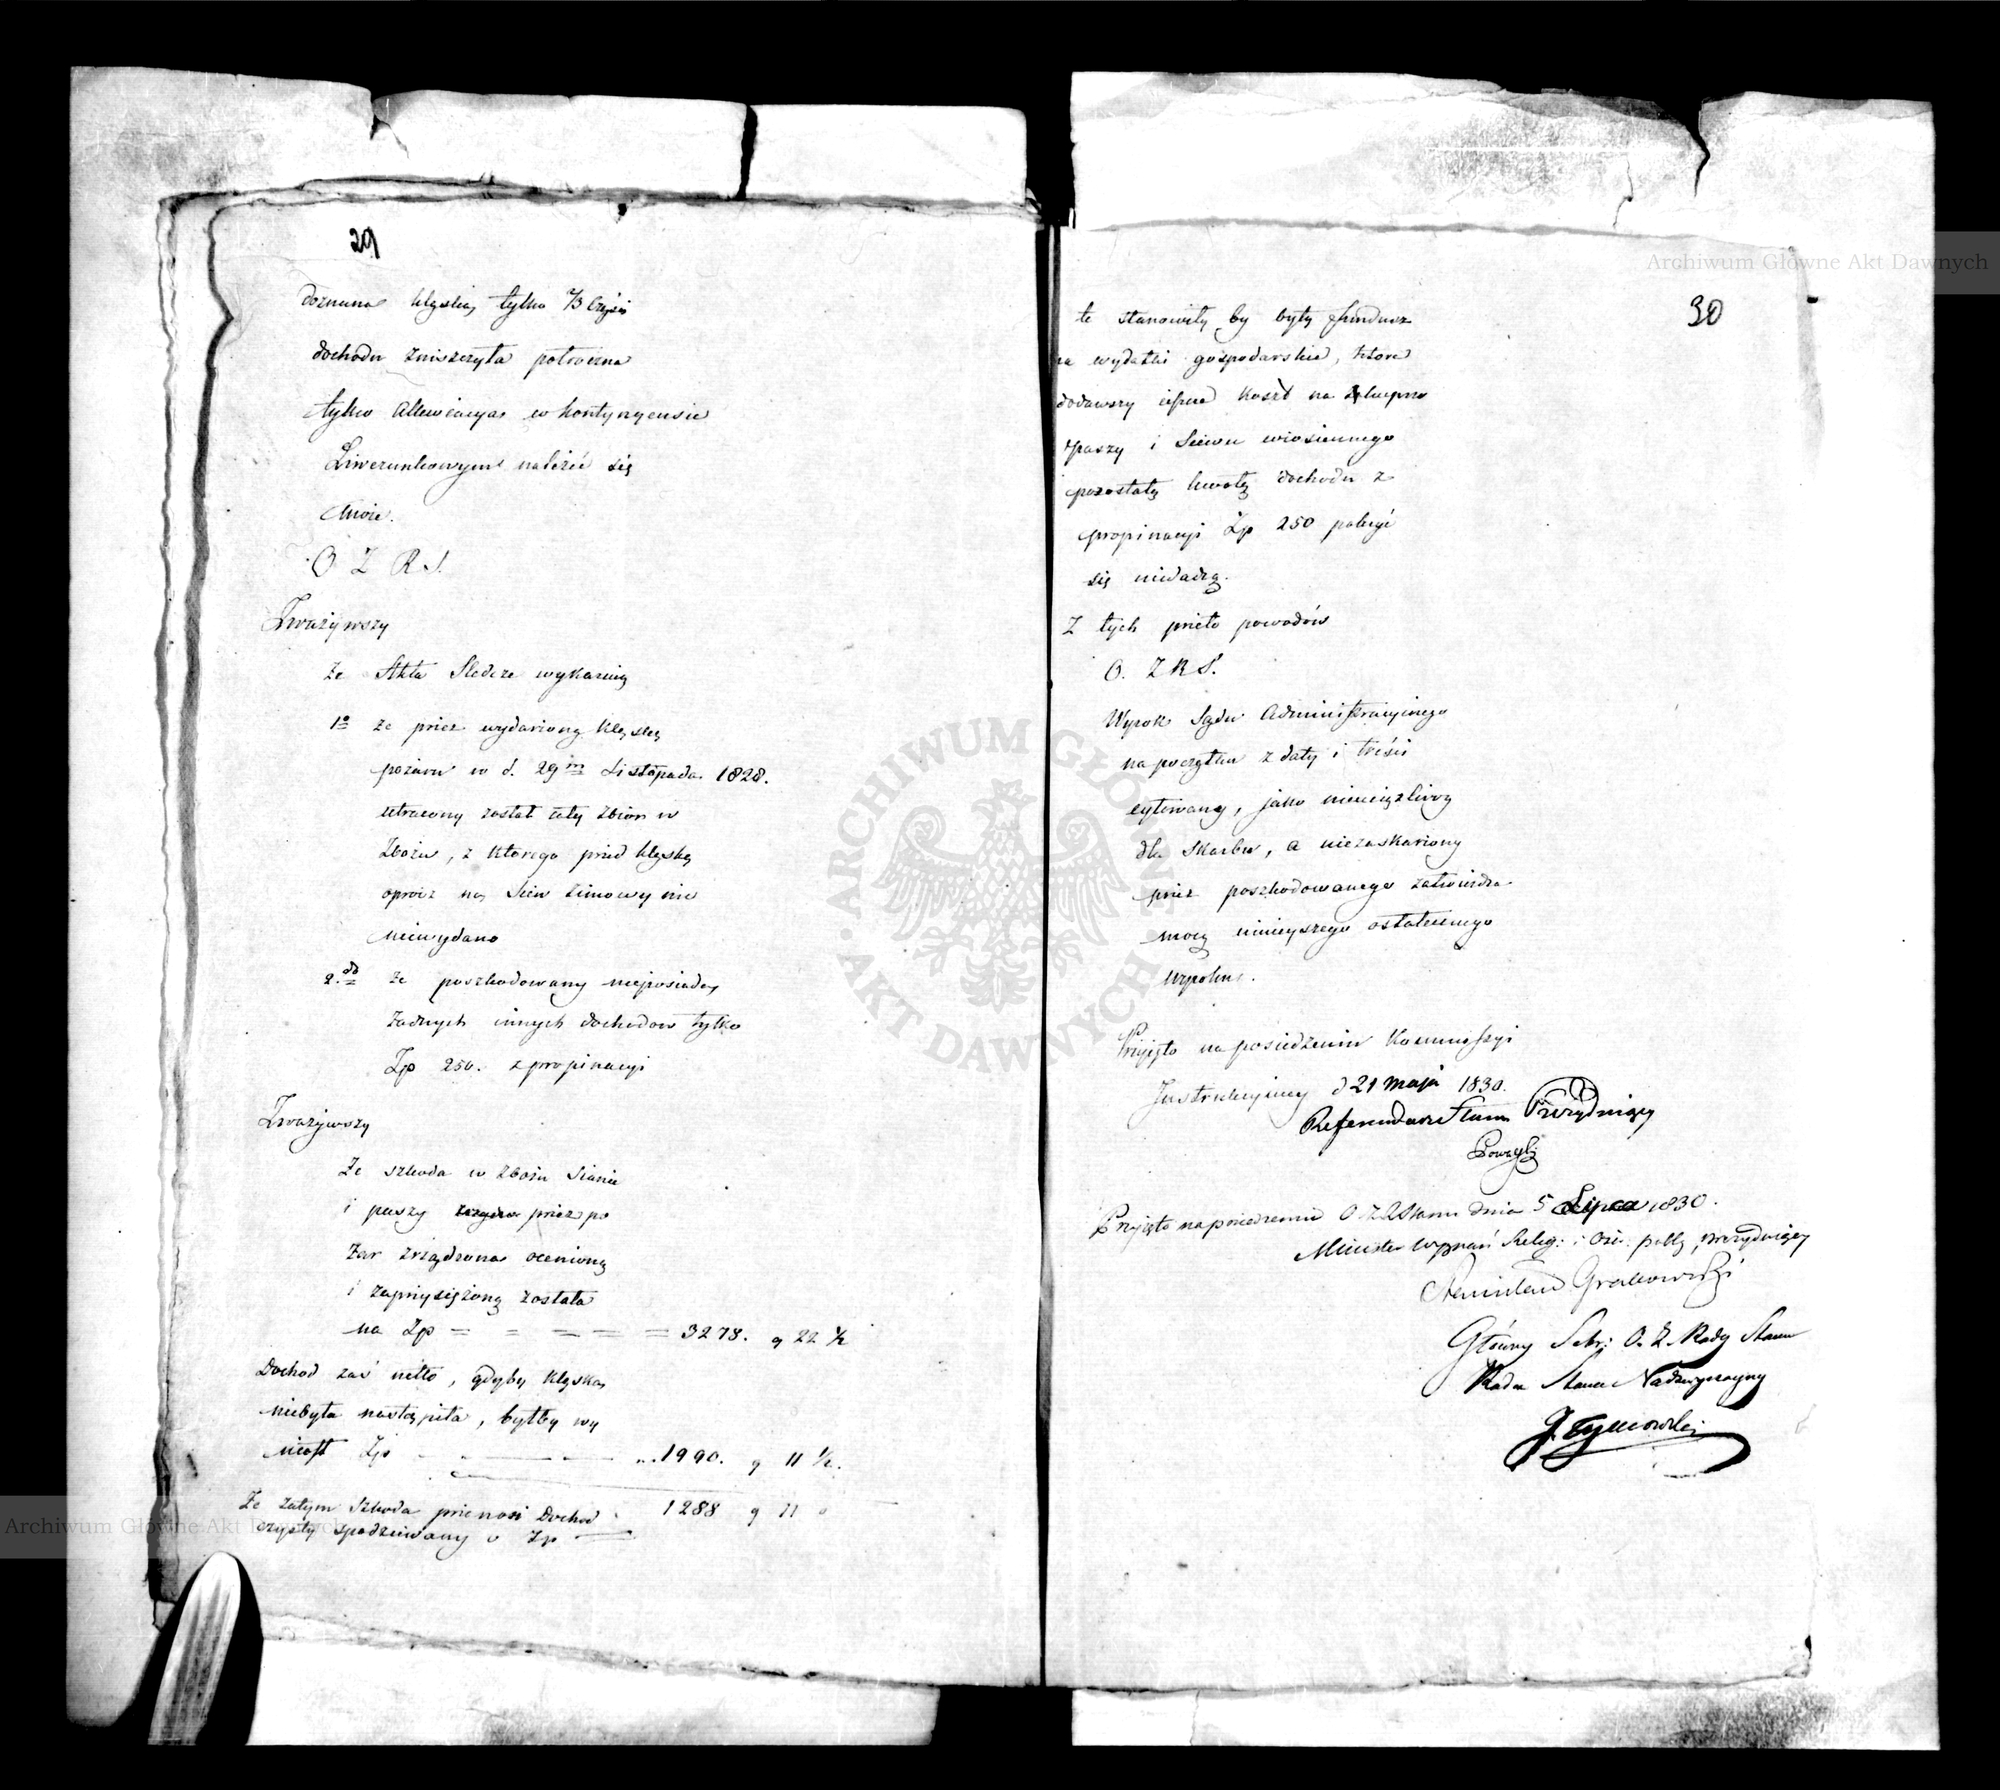 29
doznana klęska, tylko ⅓ Części
dochodu zniszczyła półroczna
tylko allewiacya w kontyngensie
Liwerunkowym należeć się
może.
O Z R S.
Zważywszy
że Akta Sledcze wykazuią
1º że przez wydarzoną klęskę
pożaru w d. 29m Listopada 1828.
utracony został cały zbiór w
Zbożu, z którego przed klęską
oprócz na Siew zimowy nic
niewydano
2.do że poszkodowany nieposiada
żadnych innych dochodów tylko
Zp 250. z propinacyi
Zważywszy
Że szkoda w zbożu Sianie
i paszy przez po
żar zrządzona ocenioną
i zaprzysiężoną została
na Zp = = = = = 3278. g 22 ½
Dochod zaś netto, gdyby klęska
niebyła nastąpiła, byłby wy
niosł Zp 1990. g 11 ½.
Że zatym Szkoda przenosi Dochod
czysty spodziewany o Zp 1288 g 11
30
te stanowiły by były fundusz
na wydatki gospodarskie, które
dodawszy koszt na zakupno
paszy i Siewu wiosennego
pozostałą kwotą dochodu z
propinacyi Zp 250 pokryć
się niedadzą.
Z tych przeto powodów
O. Z R S.
Wyrok Sądu Administracyinego
na początku z daty i treści
cytowany, jako nieuciążliwy
dla Skarbu, a niezaskarżony
przez poszkodowanego zatwierdza
mocą ninieyszego ostatecznego
Wyroku.
Przyięto na posiedzeniu Kommissyi
Instrukcyiney d 21 maja 1830.
Referendarz Stanu Prezyduiący
Przyięto na posiedzeniu O Z R Stanu dnia 5 Lipca 1830.
Minister Wyznań Relig: i Ośw: publ, prezyduiący
Stanisław Grabowski
Główny Sekr: O. Z. Rady Stanu
Radca Stanu Nadzwyczayny
J. Tymowski
Archiwum Główne Akt Dawnych
Archiwum Główne Akt Dawnych
ARCHIWUM GŁÓWNE
AKT DAWNYCH